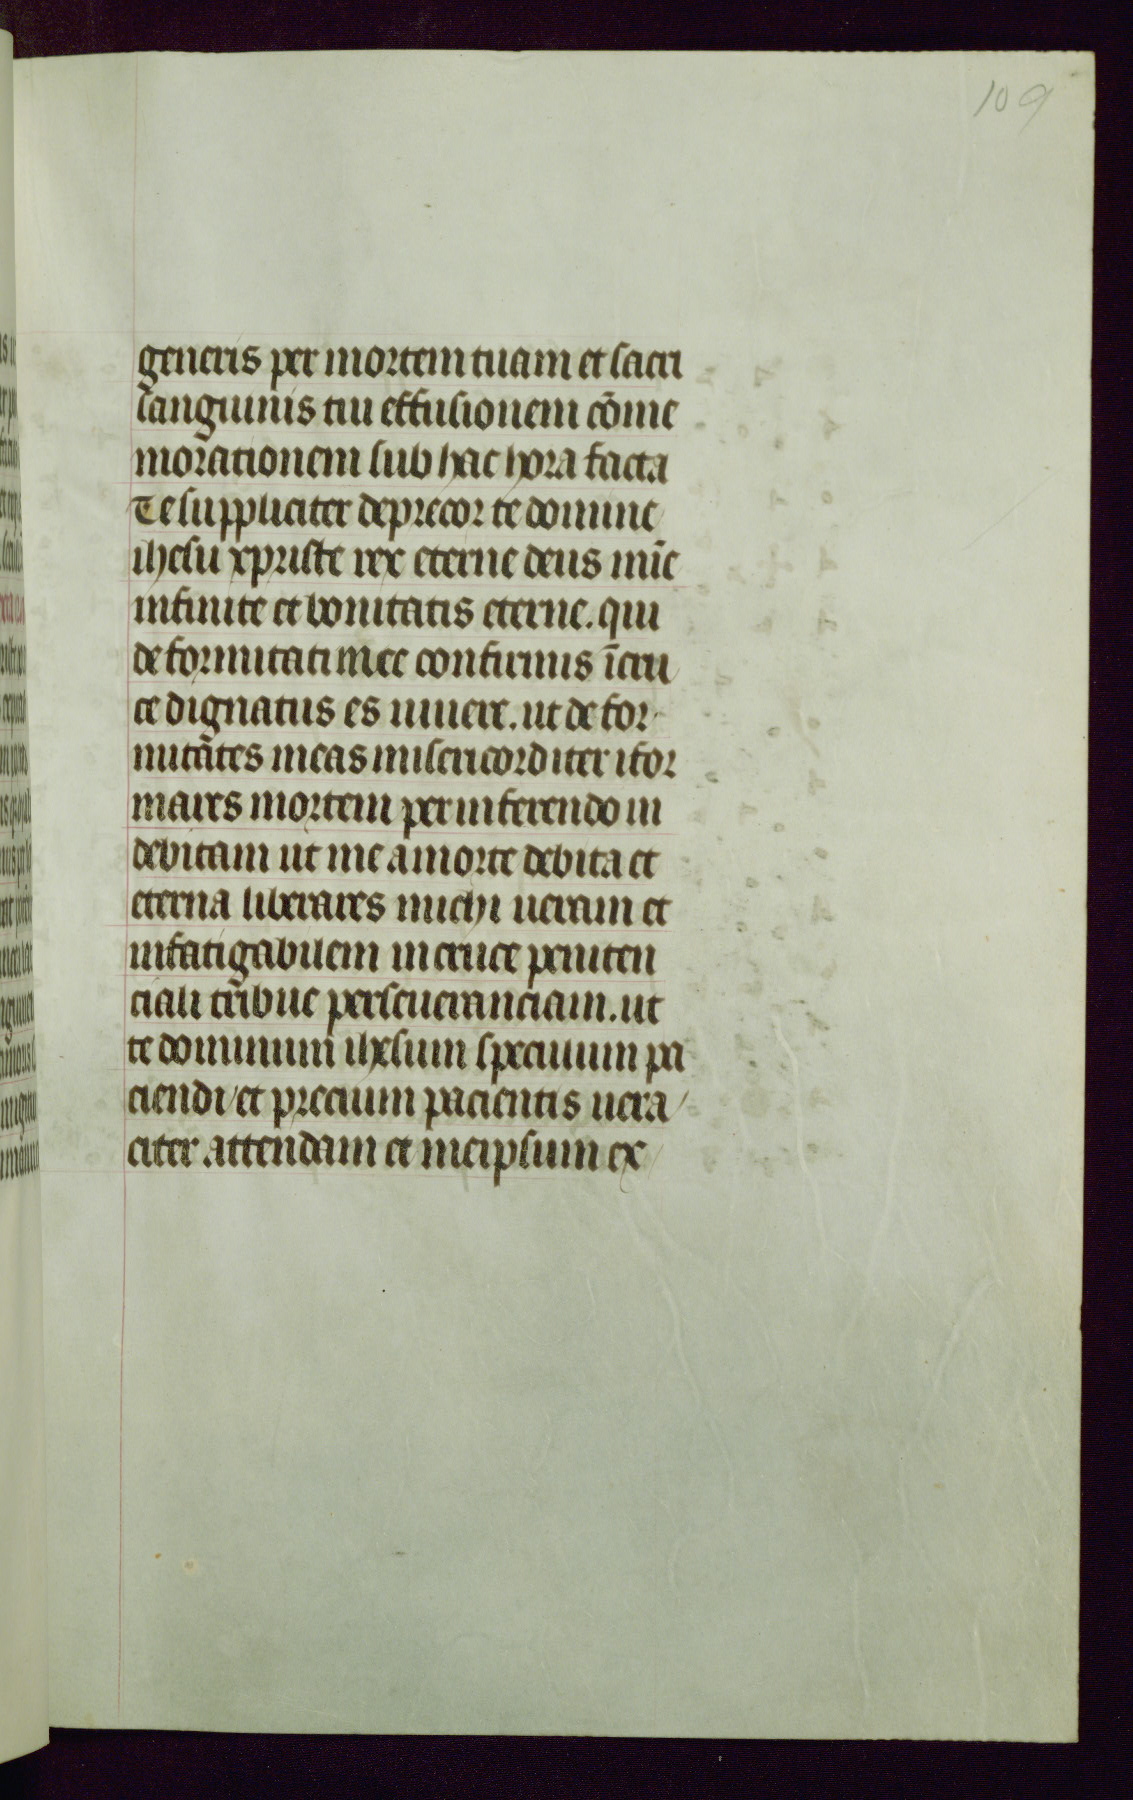 109
generis per mortem tuam et sacri
sanguinis tui effusionem cōme
morationem sub hac hora facta
Te suppliciter deprecor te domine
ihesu xpriste rex eterne deus mīe
infinite et bonitatis eterne. qui
deformitati mee confirmis ī cru
ce dignatus es iniuere. ut defor
mitātes meas misericorditer ifor
mares mortem per inferendo in
debitam ut me a morte debita et
eterna liberares michi ueram et
infatigabilem in cruce peniten
ciali tr̄ibue perseueranciam. ut
te dominum ihesum speculum pa
ciendi et precium pacientis uera
citer attendam et meipsum ex